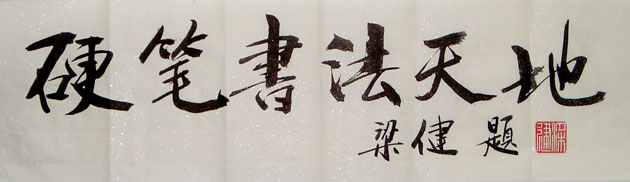 硬笔書法天地
梁健 题